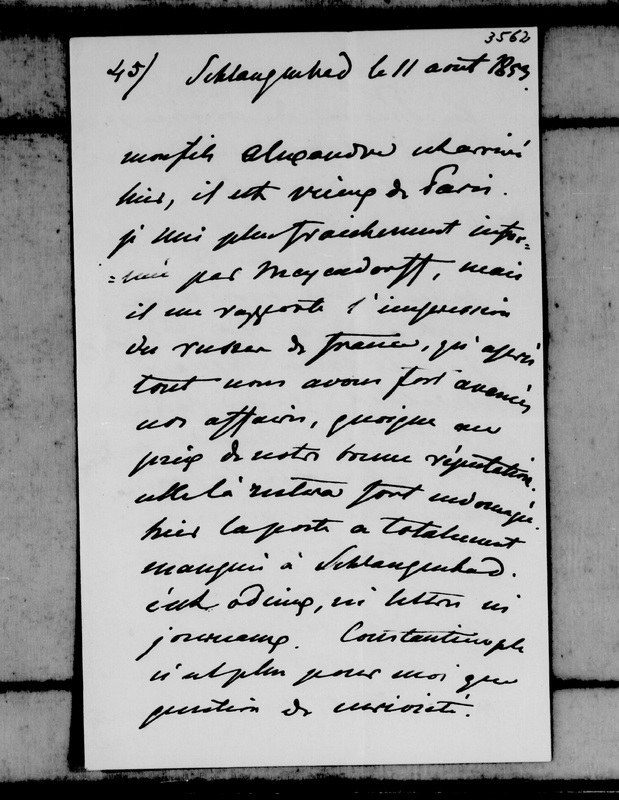 3562
45/ Schlangenbad le 11 août 1853.
mon fils Alexandre est arrivé
hier, il est vieux de Paris.
je suis plus fraichement infor=
=mée par Meyendorff, mais
il me rapporte l'impression
des russes de france, qu'après
tout nous avons fort avancés
nos affaires, quoique au
prix de notre bonne réputation.
elle là restera fort endomagé.
hier la poste a totalement
manqué à Schlangenbad.
c'est odieux, ni lettres ni
journaux. Constantinople
n'est plus pour moi que
question de curiosité.